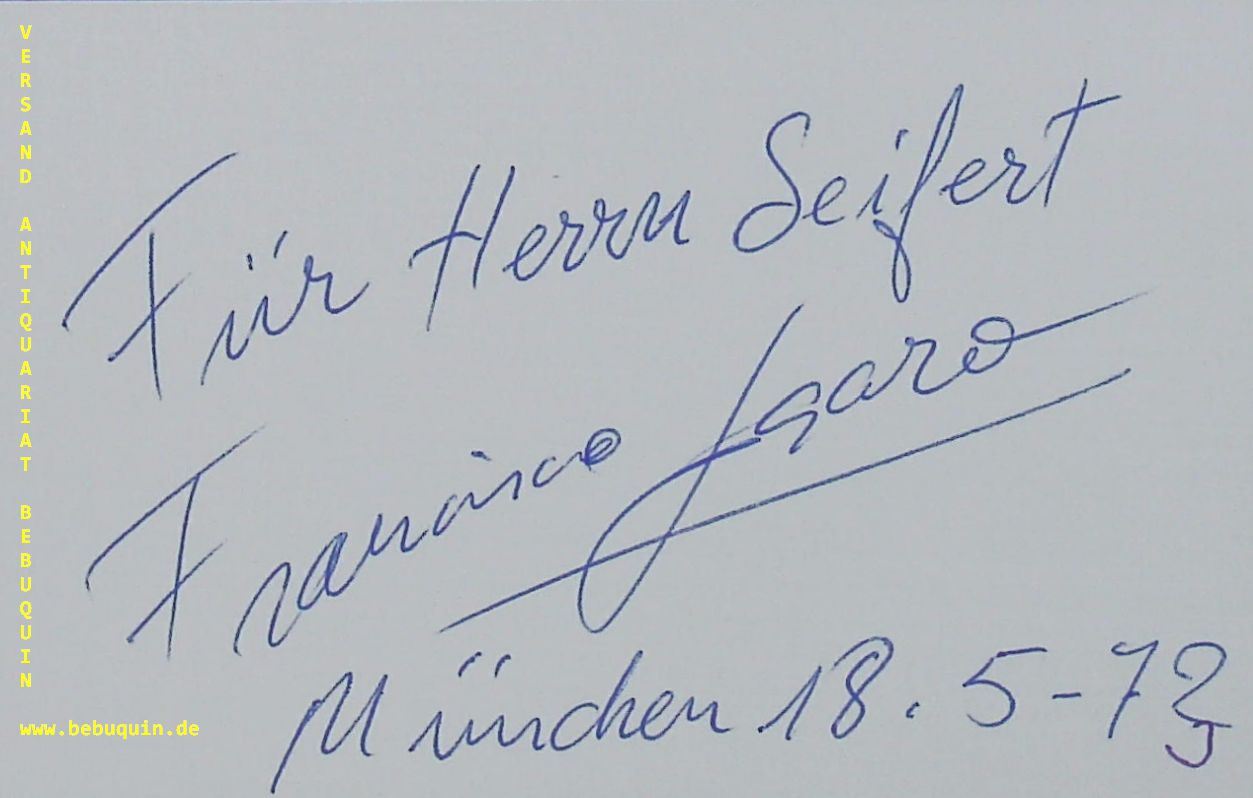 VERSAND ANTIQUARIAT BEBUQUIN
Für Herrn Seifert
Francisco
München 18. 5-72
www.bebuquin.de